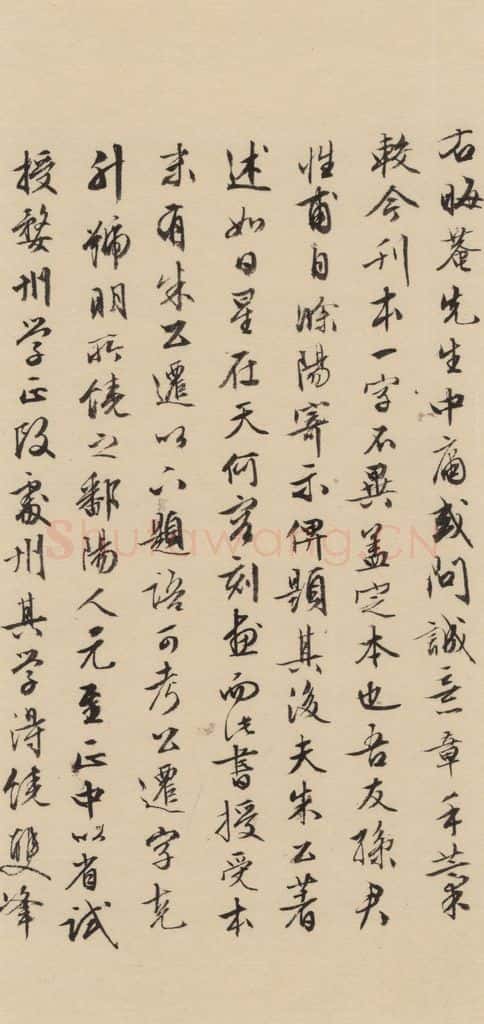 右晦菴先生中庸或問誠意章手藁
較今刊本一字不異盖定本也吾友孫君
性甫自滁陽寄示俾題其後夫朱公著
述如日星在天何容刻畫而此書授受本
末有朱公遷以下題語可考公遷字克
升號明所饒之鄱陽人元至正中以省試
授婺州学正改處州其学淂饒雙峰
Shufawang.CN